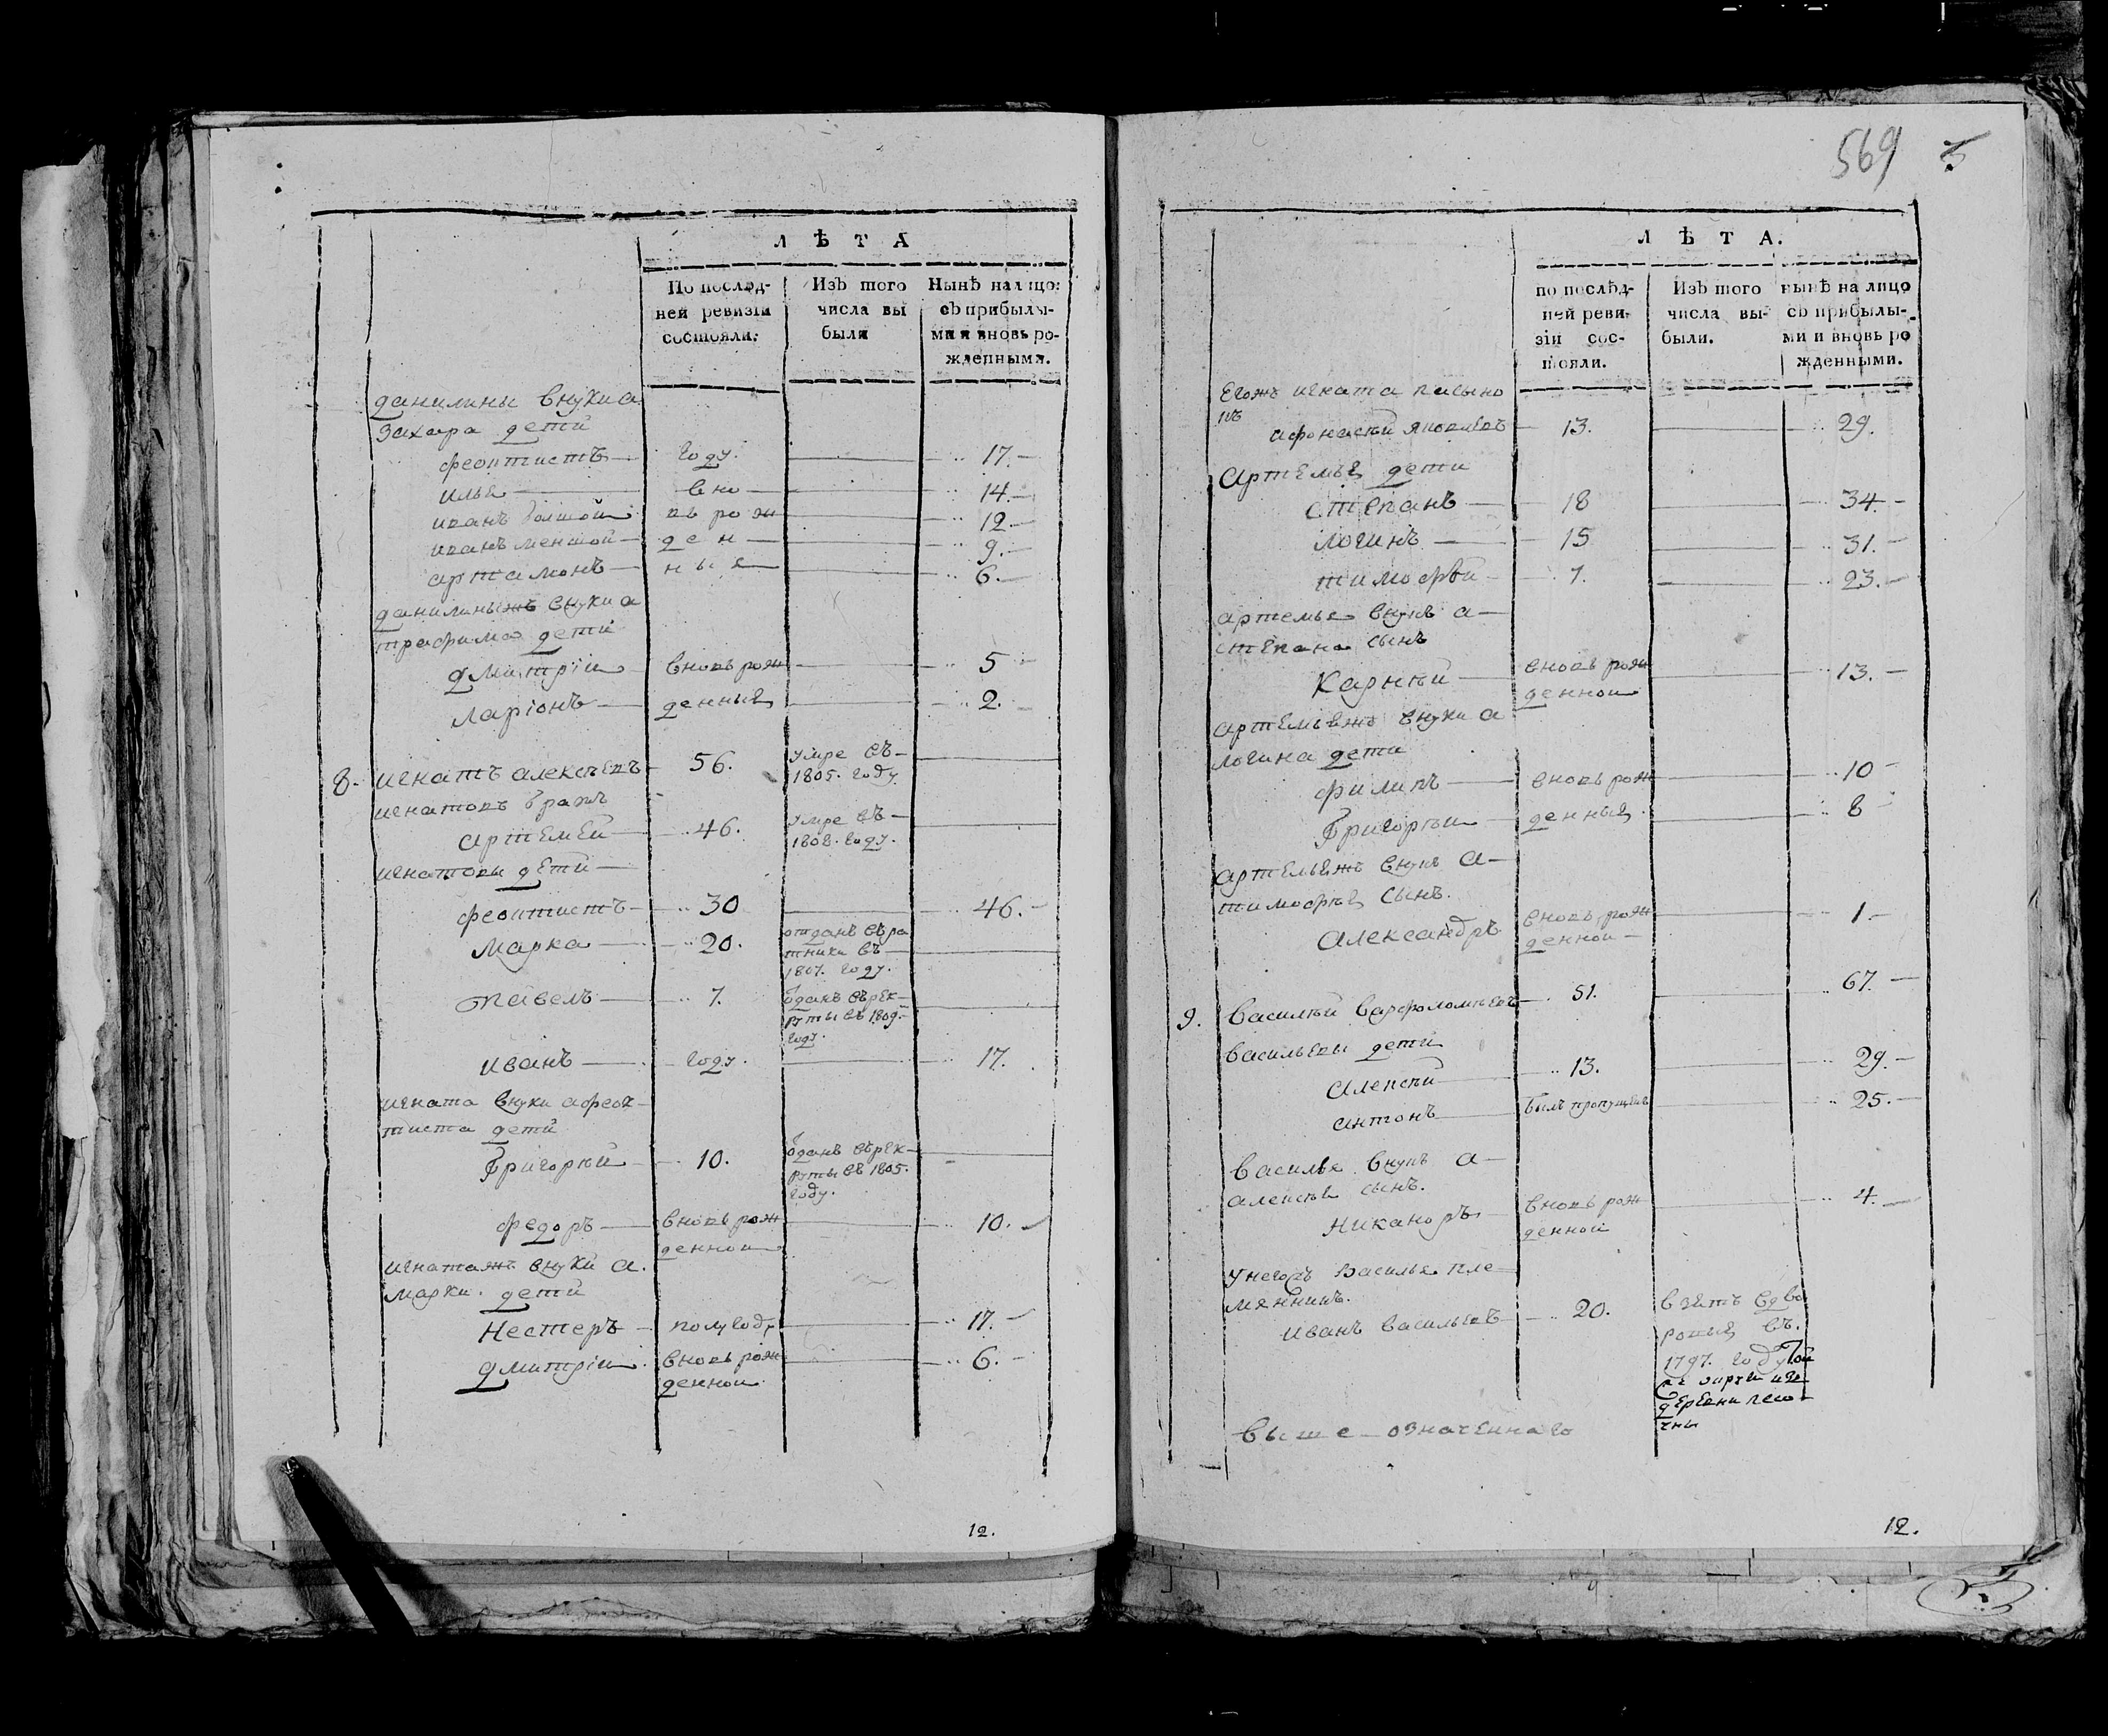 569
Л Ѣ Т А
По послѣд-
ней ревизіи
состояли.
Изъ того
числа вы
были
Нынѣ на лицо
съ прибылы-
ми и вновь ро-
жденными.
данилины внуки а
захара дети
феоптистъ году. 17.
илья вно 14.
иванъ болшой въ рож 12.
иванъ меншой ден 9.
артамонъ ныя 6.
данилиныжъ внуки а
трафима дети
дмитріи вновь рож 5
ларіонъ денныя 2.
8. игнатъ алексѣевъ 56. умре въ
1805. году
игнатовъ братъ
артемеи 46. умре въ
1808. году.
игнатовы дети
феоптистъ 30 46.
марка 20. отданъ въ ра
тники въ
1807. году.
павелъ 7. оданъ въ рек
руты въ 1809.
году.
иванъ году. 17.
игната внуки а феоп
тиста дети
Григорѣи 10. оданъ въ рек
руты въ 1805.
году.
федоръ вновь рож 10.
денной
игнатажъ внуки а.
марки. дети
Нестеръ полугоду 17.
дмитріи вновь рож 6.
денной
12.
Л Ѣ Т А.
по послѣд-
ней реви-
зіи сос-
тояли.
Изъ того
числа вы-
были.
нынѣ на лицо
съ прибылы-
ми и вновь ро
жденными.
егожъ игната пасыно
къ
афонасѣй яковлевъ 13. 29.
артемья дети
степанъ 18 34.
логинъ 15 31.
тимофѣй 7. 23.
артемья внукъ а
степана сынъ
Карнѣй вновь рож 13.
денной
артемьяжъ внуки а
логина дети
филипъ вновь рож 10
Григорѣи денныя. 8
артемьяжъ внукъ а
тимофѣя сынъ.
александръ вновь рож 1.
денной
9. василѣй варфоломѣевъ 51. 67.
васильевы дети
алексѣй 13. 29.
антонъ былъ пропущенъ 25.
василья внукъ а
алексѣя сынъ.
никаноръ вновь рож 4.
денной
у негожъ василья пле
мянникъ.
иванъ васильевъ 20. взятъ въ дво
ровыя въ.
1797. году
деревни
выше означеннаго
12.